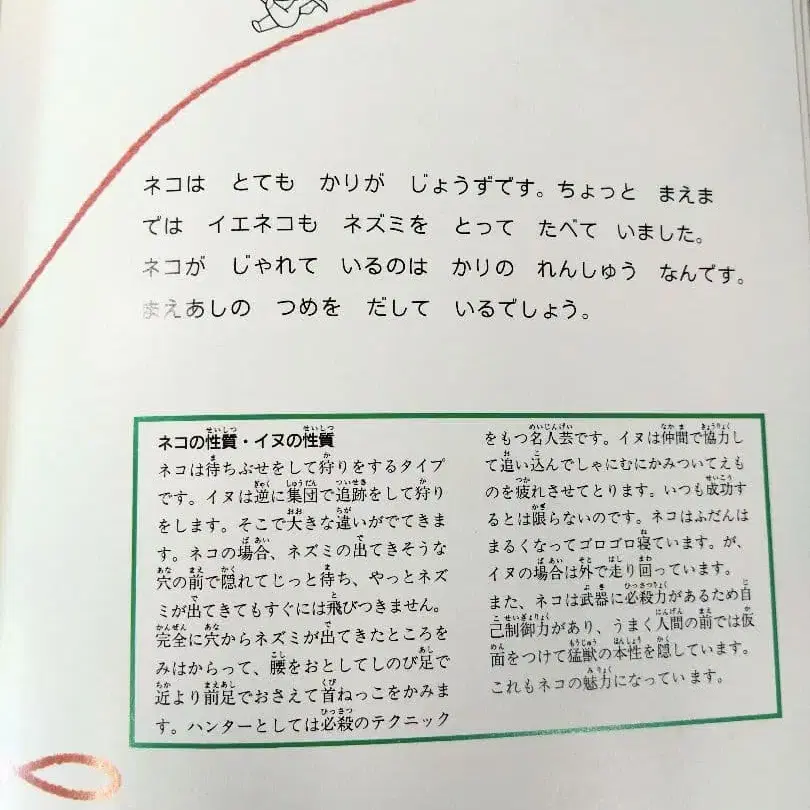 ネコは　とても　かりが　じょうずです。ちょっと　まえま
では　イエネコも　ネズミを　とって　たべて　いました。
ネコが　じゃれて　いるのは　かりの　れんしゅう　なんです。
まえあしの　つめを　だして　いるでしょう。
ネコの性質・イヌの性質
ネコは待ちぶせをして狩りをするタイプ
です。イヌは逆に集団で追跡をして狩り
をします。そこで大きな違いがでてきま
す。ネコの場合、ネズミの出てきそうな
穴の前で隠れてじっと待ち、やっとネズ
ミが出てきてもすぐには飛びつきません。
完全に穴からネズミが出てきたところを
みはからって、腰をおとしてしのび足で
近より前足でおさえて首ねっこをかみま
す。ハンターとしては必殺のテクニック
をもつ名人芸です。イヌは仲間で協力し
て追い込んでしゃにむにかみついてえも
のを疲れさせてとります。いつも成功す
るとは限らないのです。ネコはふだんは
まるくなってゴロゴロ寝ています。が、
イヌの場合は外で走り回っています。
また、ネコは武器に必殺力があるため自
己制御力があり、うまく人間の前では仮
面をつけて猛獣の本性を隠しています。
これもネコの魅力になっています。